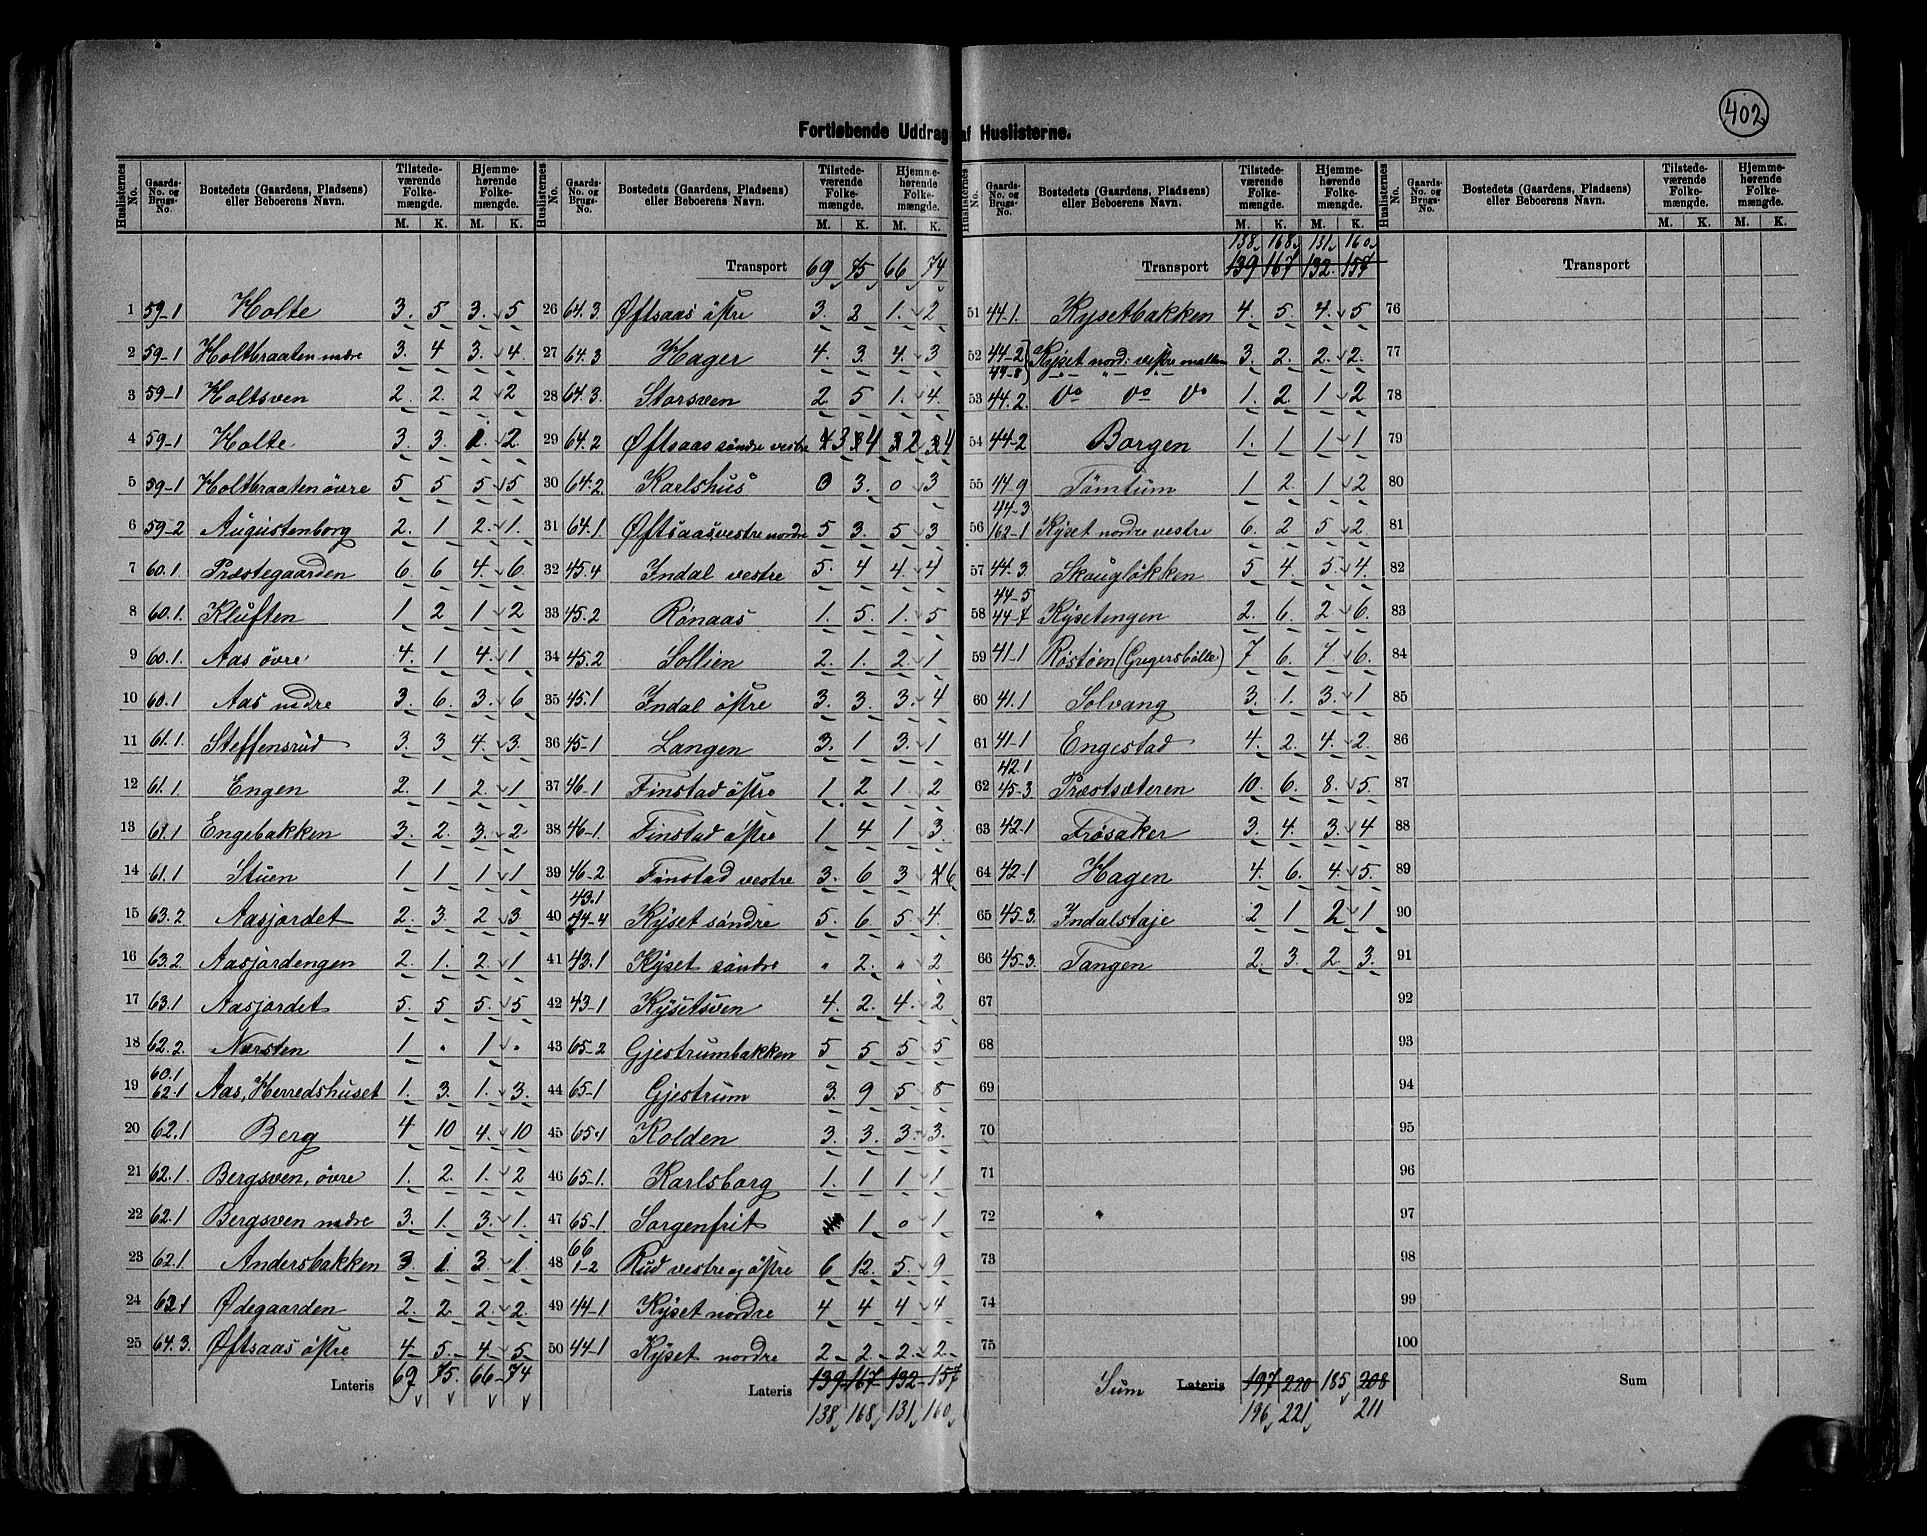 402
Fortløbende Uddrag af Huslisterne.
Huslisternes No. | Gaards-No. og Brugs-No. | Bostedets (Gaardens, Pladsens) eller Beboerens Navn. | Tilstedeværende Folkemængde. M. K. | Hjemmehørende Folkemængde. M. K.
1 59-1 Holte 3. 5 3. 5
2 59-1 Holtbraaten nedre 3. 4 3. 4.
3 59-1 Holtsven 2. 2. 2 2
4 59-1 Holte 3. 3. 1. 2.
5 59-1 Holtbraaten övre 5 5 5 5
6 59-2 Augustenborg 2. 1 2. 1.
7 60.1. Præstegaarden 6 6 4. 6.
8 60.1. Kluften 1 2 1 2
9 60.1. Aas övre 4. 1 4. 1
10 60.1 Aas nedre 3. 6. 3. 6
11 61.1. Steffensrud 3. 3 4. 3.
12 61.1. Engen 2. 1 2. 1
13 61.1 Engebakken 3. 2. 3. 2
14 61.1 Stuen 1 1 1 1
15 63.2. Aasjordet 2. 3. 2 3.
16 63.2. Aasjordengen 2. 1. 2. 1
17 63.1 Aasjordet 5. 5 5. 5
18 62.2. Nærsten 1 . 1 .
19 60.1 62.1 Aas, Herredshuset 1. 3. 1. 3.
20 62.1 Berg 4 10 4. 10
21 62.1. Bergsven, övre 1. 2. 1. 2
22 62.1 Bergsven nedre 3. 1. 3. 1.
23 62.1 Andersbakken 3 1. 3 1.
24 62.1 Ødegaarden 2. 2 2. 2.
25 64.3. Øftsaas östre 4 5. 4 5
Lateris 69 75. 66 74
Transport 69 75 66 74
26 64.3. Øftsaas östre 3. 2 1. 2
27 64.3 Hager 4. 3. 4. 3
28 64.3. Storsven 2 5 1. 4.
29 64.2 Øftsaas söndre vestre 3 4 2 4
30 64.2. Karlshus 0 3. 0 3
31 64.1. Øftsaas vestre nordre 5 3. 5 3
32 45.4 Indal vestre 5. 4 4. 4
33 45.2 Rønaas 1. 5. 1. 5
34 45.2 Sollien 2. 1. 2. 1
35 45.1 Indal östre 3. 3. 3. 4
36 45-1 Langen 3. 1 3. 1
37 46-1 Finstad östre 1 2 1 2
38 46-1. Finstad östre 1 4 1 3.
39 46-2 Finstad vestre 3. 6 3 6
40 43.1 44-4 Kyset söndre 5. 6 5. 4
41 43.1 Kyset söndre " 2. " 2
42 43-1 Kysetsven 4. 2. 4. 2
43 65-2 Gjestrumbakken 5 5 5 5
44 65-1 Gjestrum 3. 9 5 8
45 65-1 Kolden 3. 3. 3. 3.
46 65-1. Karlsborg 1. 1 1 1
47 65-1 Sorgenfrit 1 0 1
48 66 1-2 Rud vestre og östre 6 12. 5. 9
49 44-1 Kyset nordre 4 4 4 4
50 44-1 Kyset nordre 2 2. 2. 2
Lateris 139 167 132 157
138 168 131 160
138 168 131 160
Transport 139 167 132. 157
51 44-1. Kysetbakken 4. 5. 4. 5
52 44-2 44-8 Kyset nord: vestre mellem 3. 2. 2 2.
53 44.2. Do Do Do 1. 2. 1 2
54 44-2 Borgen 1. 1 1 1
55 44-9 Tömtum 1 2. 1 2
56 44-3 162-1 Kyset nordre vestre 6. 2 5 2.
57 44-3. Skougløkken 5 4. 5 4.
58 44-5 44-7 Kysetengen 2. 6. 2 6.
59 41-1 Røstøen (Gregersbölle) 7 6. 7 6.
60 41.1 Solvang 3. 1. 3. 1
61 41-1 Engestad 4. 2. 4. 2.
62 42.1 45-3 Præstsæteren 10. 6. 8. 5.
63 42.1 Frösaker 3. 4. 3. 4
64 42-1 Hagen 4. 6. 4. 5.
65 45-3. Indalstaje 2 1 2 1
66 45-3. Tangen 2. 3. 2. 3.
67
68
69
70
71
72
73
74
75
Sum Lateris 197 220 185 208
196 221 211
Transport
76
77
78
79
80
81
82
83
84
85
86
87
88
89
90
91
92
93
94
95
96
97
98
99
100
Sum